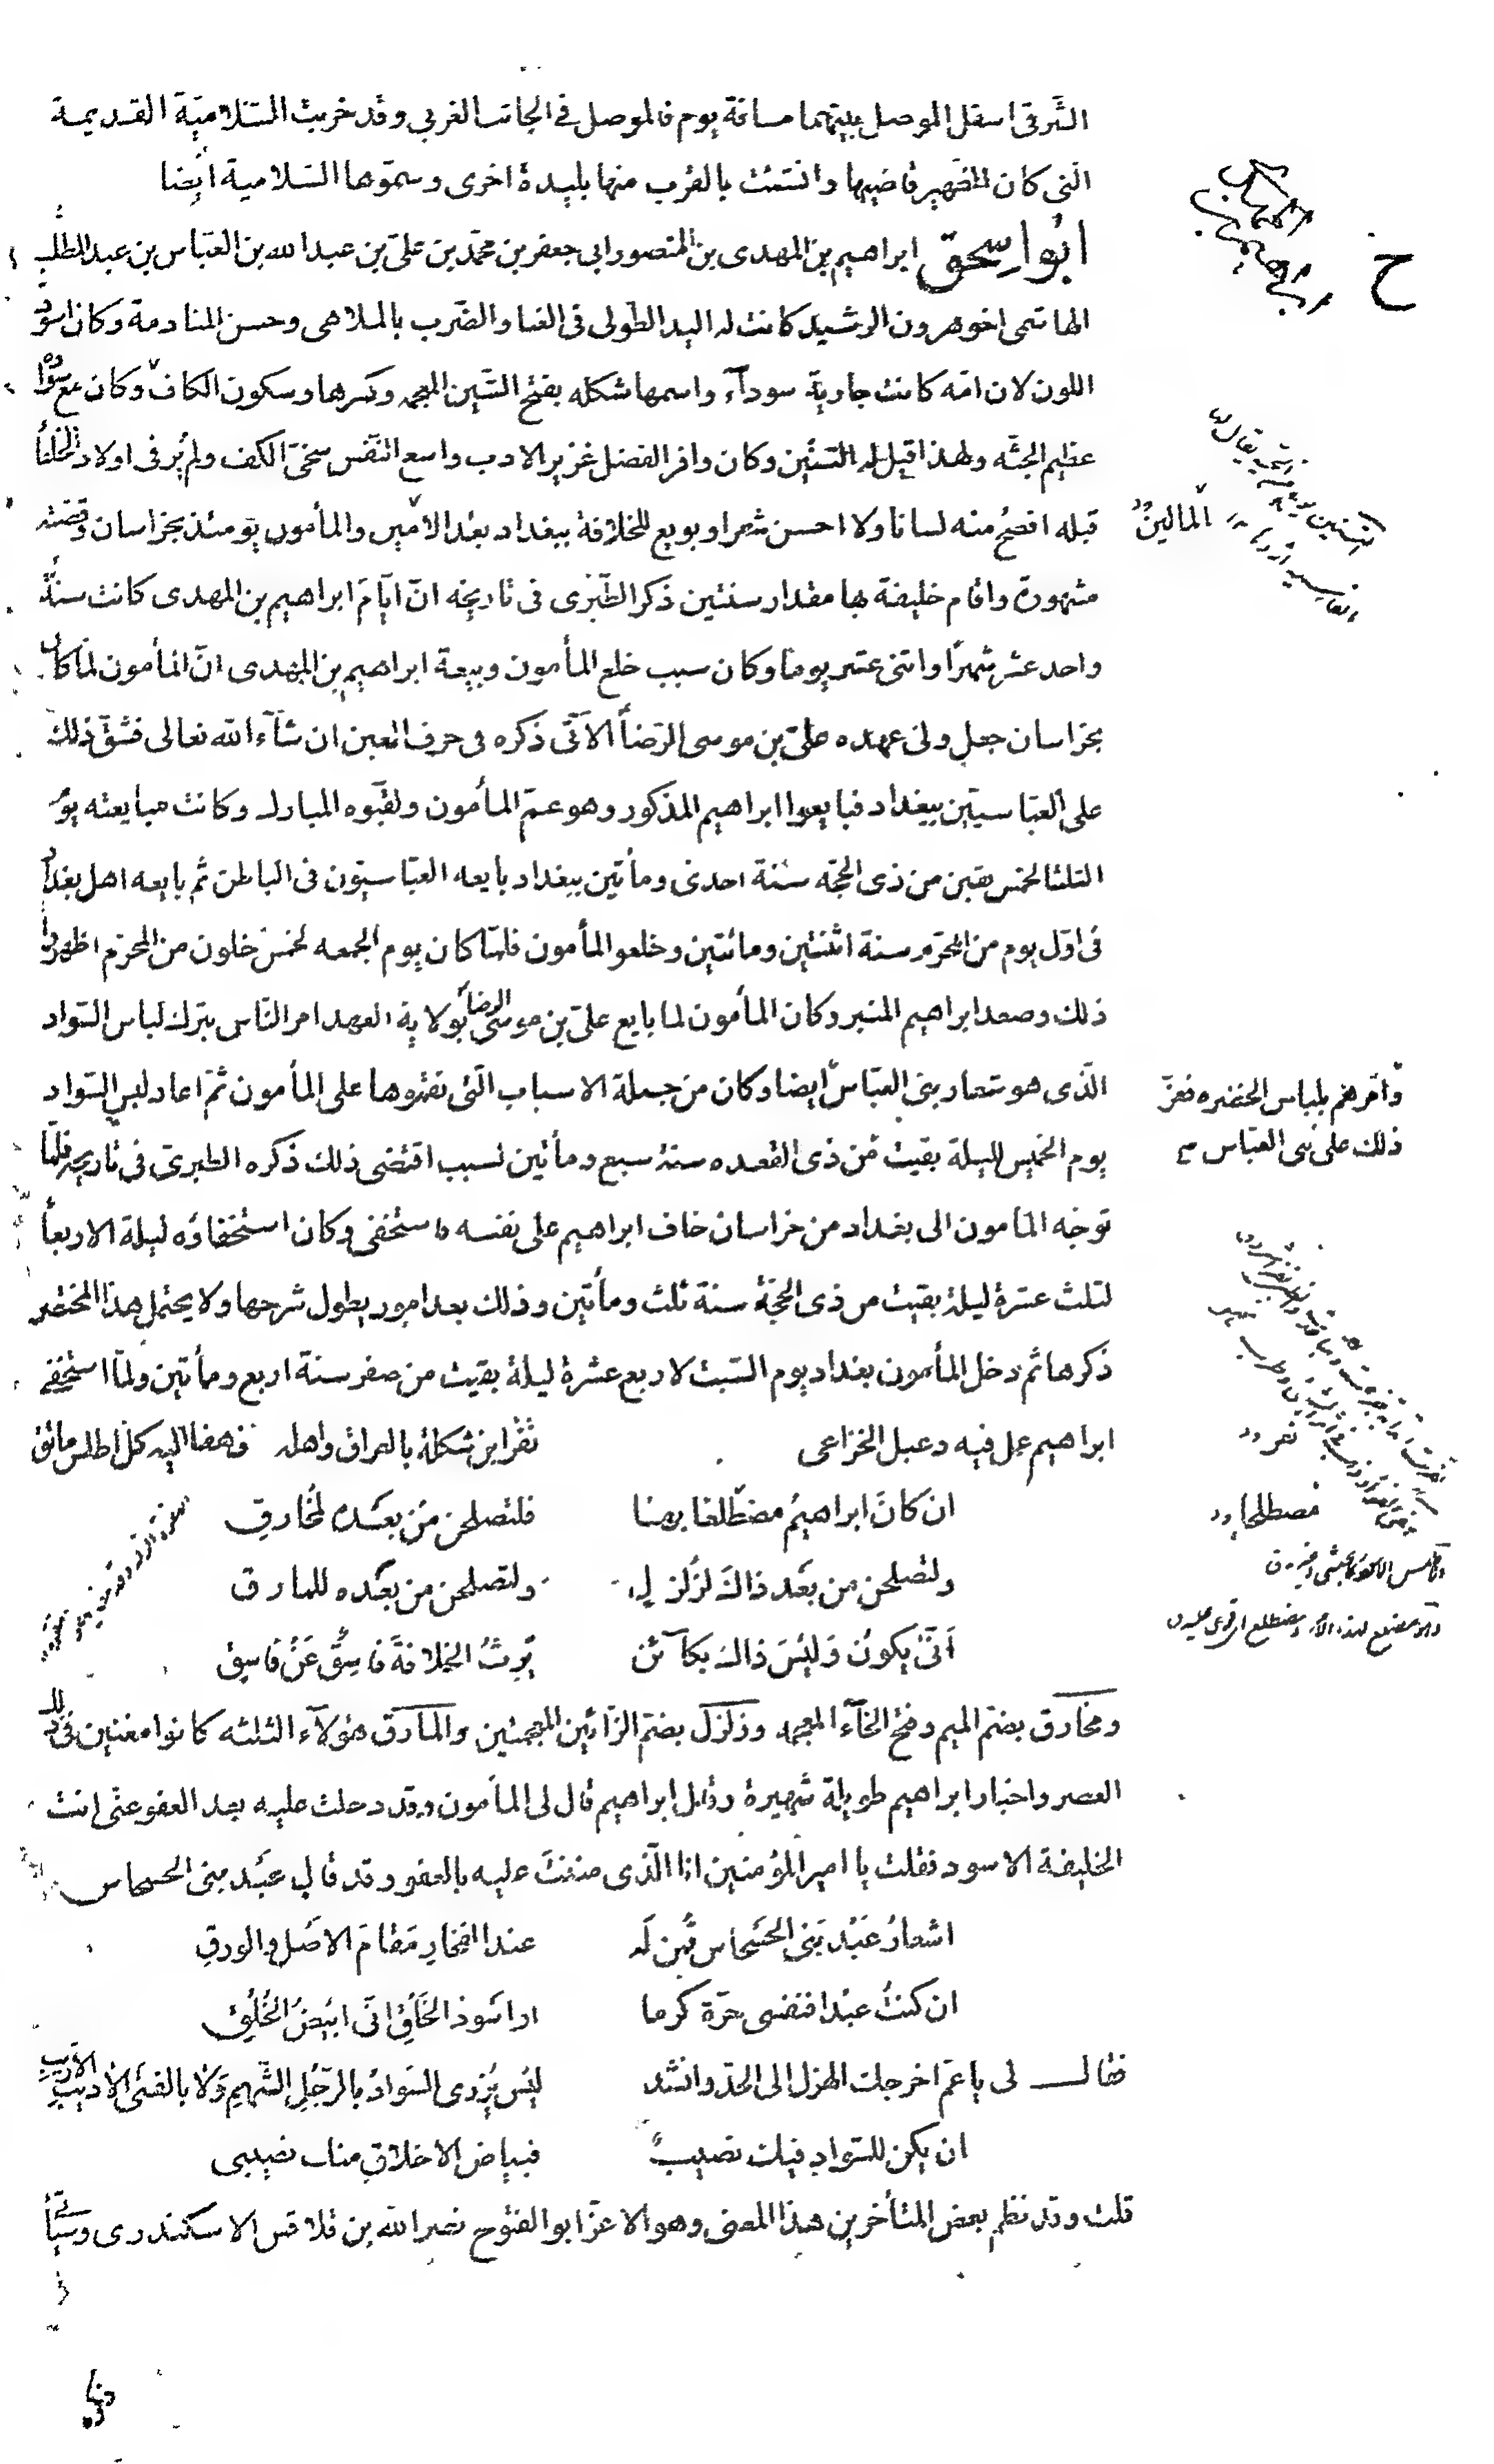 الشرقى اسفل الموصل بينهما مسافة يوم فالموصل فى الجانب الغربى وقد خربت السلامية القديمة
التى كان الظهير قاضيها وانشئت بالقرب منها بليدة اخرى وسموها السلامية ايضا
ابو اسحق ابراهيم بن المهدى بن المنصور ابى جعفر بن محمد بن على بن عبد الله بن العباس بن عبد المطلب
الهاشمى اخو هرون الرشيد كانت له اليد الطولى فى الغنا والضرب بالملاهى وحسن المنادمة وكان اسود
اللون لان امه كانت جارية سودآء واسمها شكله بفتح الشين المعجمه وكسرها وسكون الكاف وكان مع سواده
عظيم الجثه ولهذا قيل له التنين وكان وافر الفضل غزير الادب واسع النفس سخى الكف ولم ير فى اولاد الخلفأ
قبله افصح منه لسانا ولا احسن شعرا وبويع للخلافة ببغداد بعد الامين والمأمون يومئذ بخراسان وقصته
مشهورة واقام خليفة بها مقدار سنتين ذكر الطبرى فى تاريخه ان ايام ابراهيم بن المهدى كانت سنة
واحد عشر شهرا واثنى عشر يوما وكان سبب خلع المأمون وبيعة ابراهيم بن المهدى ان المأمون لما كان
بخراسان جعل ولى عهده على بن موسى الرضا الآتى ذكره فى حرف العين ان شآء الله تعالى فشق ذلك
على العباسيين ببغداد فبايعوا ابراهيم المذكور وهو عم المأمون ولقبوه المبارك وكانت مبايعته يوم
الثلثا لخمس بقين من ذى الحجه سنة احدى ومأتين ببغداد بايعه العباسيون فى الباطن ثم بايعه اهل بغداد
فى اول يوم من المحرم سنة اثنتين ومائتين وخلعو المأمون فلما كان يوم الجمعه لخمس خلون من المحرم اظهروا
ذلك وصعد ابراهيم المنبر وكان المأمون لما بايع على بن موسى الرضا بولاية العهد امر الناس بترك لباس السواد
الذى هو شعار بنى العباس ايضا وكان من جملة الاسباب التى نقموها على المأمون ثم اعاد لبس السواد
وامرهم بلباس الخضره فعز
ذلك على بنى العباس
يوم الخميس لليلة بقيت من ذى القعده سنة سبع ومأتين لسبب اقتضى ذلك ذكره الطبرى فى تاريخه فلما
توجه المامون الى بغداد من خراسان خاف ابراهيم على نفسه فاستخفى وكان استخفاؤه ليلة الاربعأ
لثلث عشرة ليلة بقيت من ذى الحجة سنة ثلث ومأتين وذلك بعد امور يطول شرحها ولا يحتمل هذا المختصر
ذكرها ثم دخل المأمون بغداد يوم السبت لاربع عشرة ليلة بقيت من صفر سنة اربع ومأتين ولما استخفى
ابراهيم عمل فيه دعبل الخزاعى نفر ابن شكلة بالعراق واهله فهفا اليه كل اطلس مائق
ان كان ابراهيم مضطلعا بها فلتصلحن من بعده لمخارق
ولتصلحن من بعد ذاك لزلزل ولتصلحن من بعده للمارق
انى يكون وليس ذاك بكآئن يرث الخلافة فاسق عن فاسق
ومخارق بضم الميم وفتح الخآء المعجمه وزلزل بضم الزائين المعجمتين والمارق هؤلآء الثلثه كانوا مغنين فى ذلك
العصر واخبار ابراهيم طويلة شهيرة وقال ابراهيم قال لى المأمون وقد دخلت عليه بعد العفو عنى انت
الخليفة الاسود فقلت يا امير المؤمنين انا الذى مننت عليه بالعفو وقد قال عبد بنى الحسحاس
اشعار عبد بنى الحسحاس قمن له عند الفخار مقام الاصل والورق
ان كنت عبدا فنفسى حرة كرما او اسود الخلق انى ابيض الخلق
فقال لى يا عم اخرجك الهزل الى الجد وانشد ليس يزرى السواد بالرجل الشهم ولا بالفتى الاديب الاريب
ان يكن للسواد فيك نصيب فبياض الاخلاق منك نصيبى
قلت وقد نظم بعض المتأخرين هذا المعنى وهو الاعز ابو الفتوح نصر الله بن قلاقس الاسكندرى وسيأتى